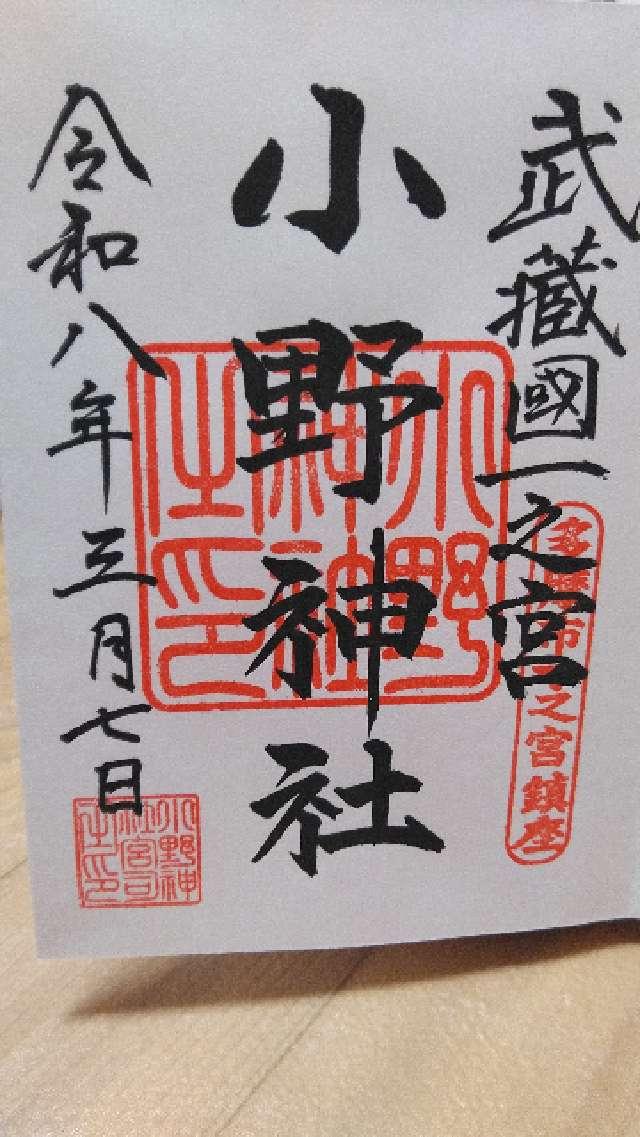 武藏國一之宮
多摩市一之宮鎮座
小野神社
小野神社之印
令和八年三月七日
小野神社宮司之印